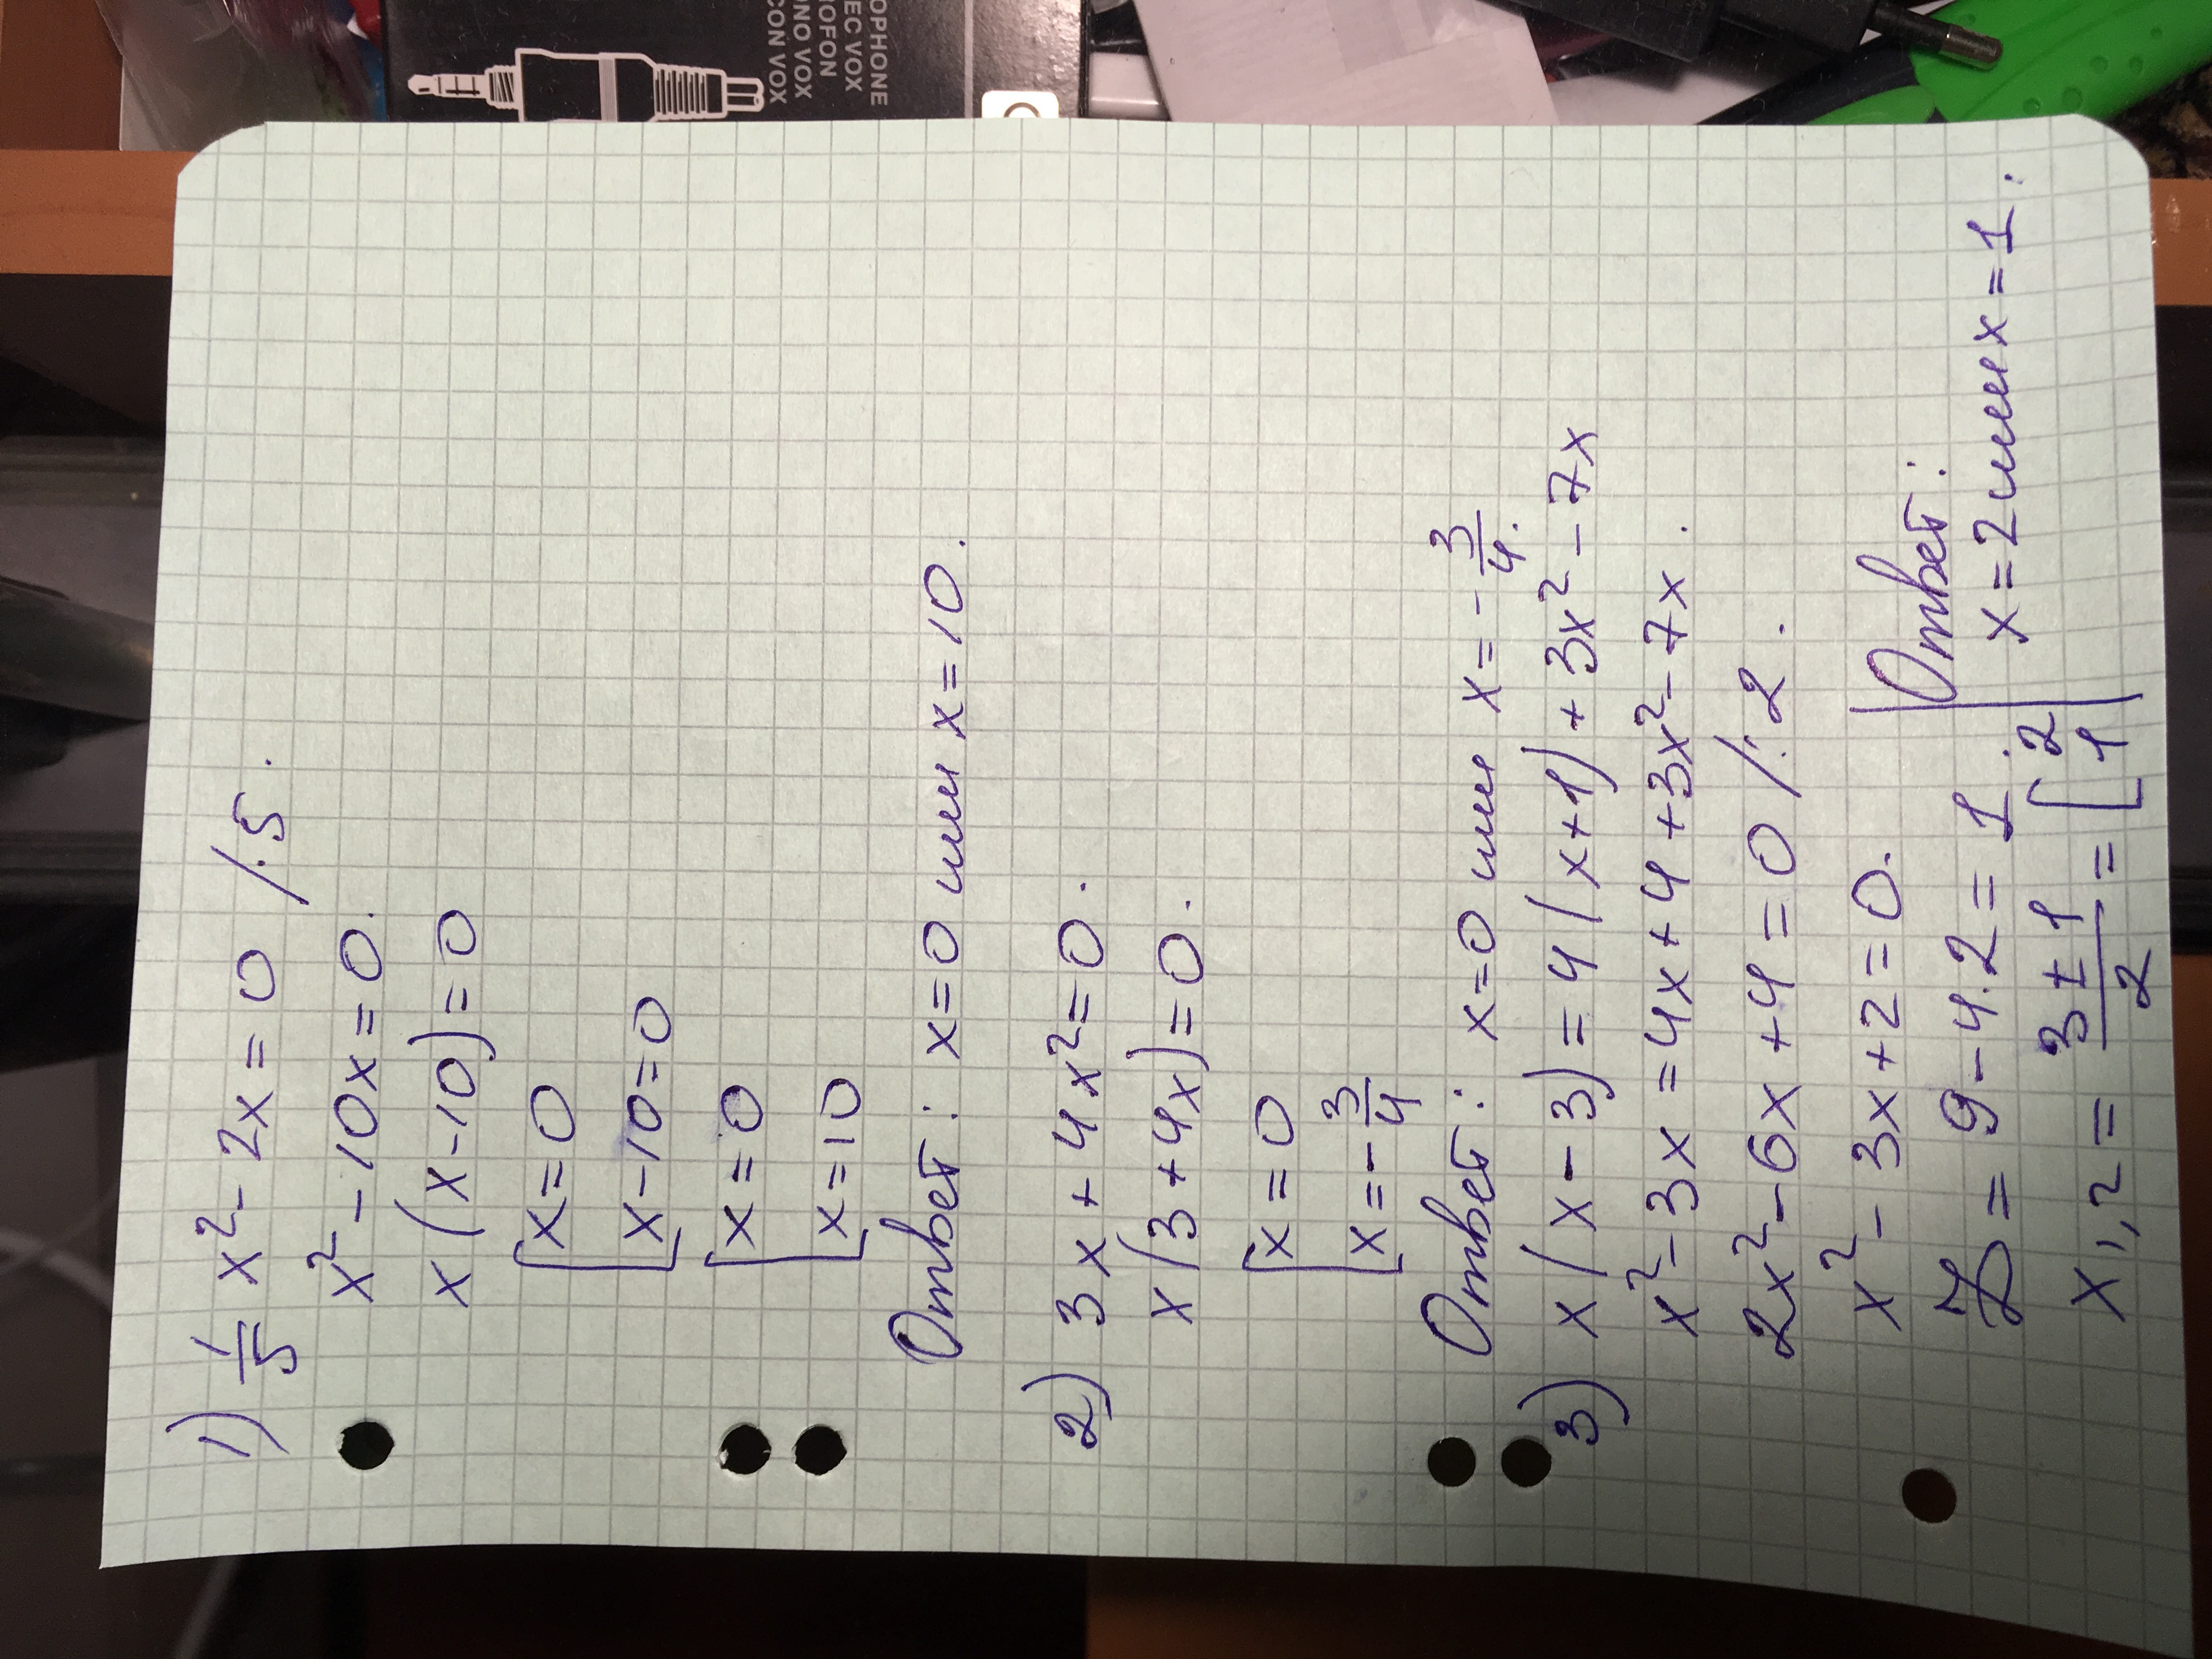 OPHONE
EC VOX
OFON
ONO VOX
CON VOX
1) 1/5 x² - 2x = 0 /·5.
x² - 10x = 0.
x(x-10) = 0
[x=0
[x-10=0
[x=0
[x=10
Ответ: x=0 или x=10.
2) 3x + 4x² = 0.
x(3+4x)=0.
[x=0
[x=-3/4
Ответ: x=0 или x=-3/4.
3) x(x-3) = 4(x+1) + 3x² - 7x
x² - 3x = 4x + 4 + 3x² - 7x.
2x² - 6x + 4 = 0 /:2.
x² - 3x + 2 = 0.
D = 9 - 4·2 = 1
x₁,₂ = (3 ± 1)/2 = [2
[1
Ответ:
x=2 или x=1.